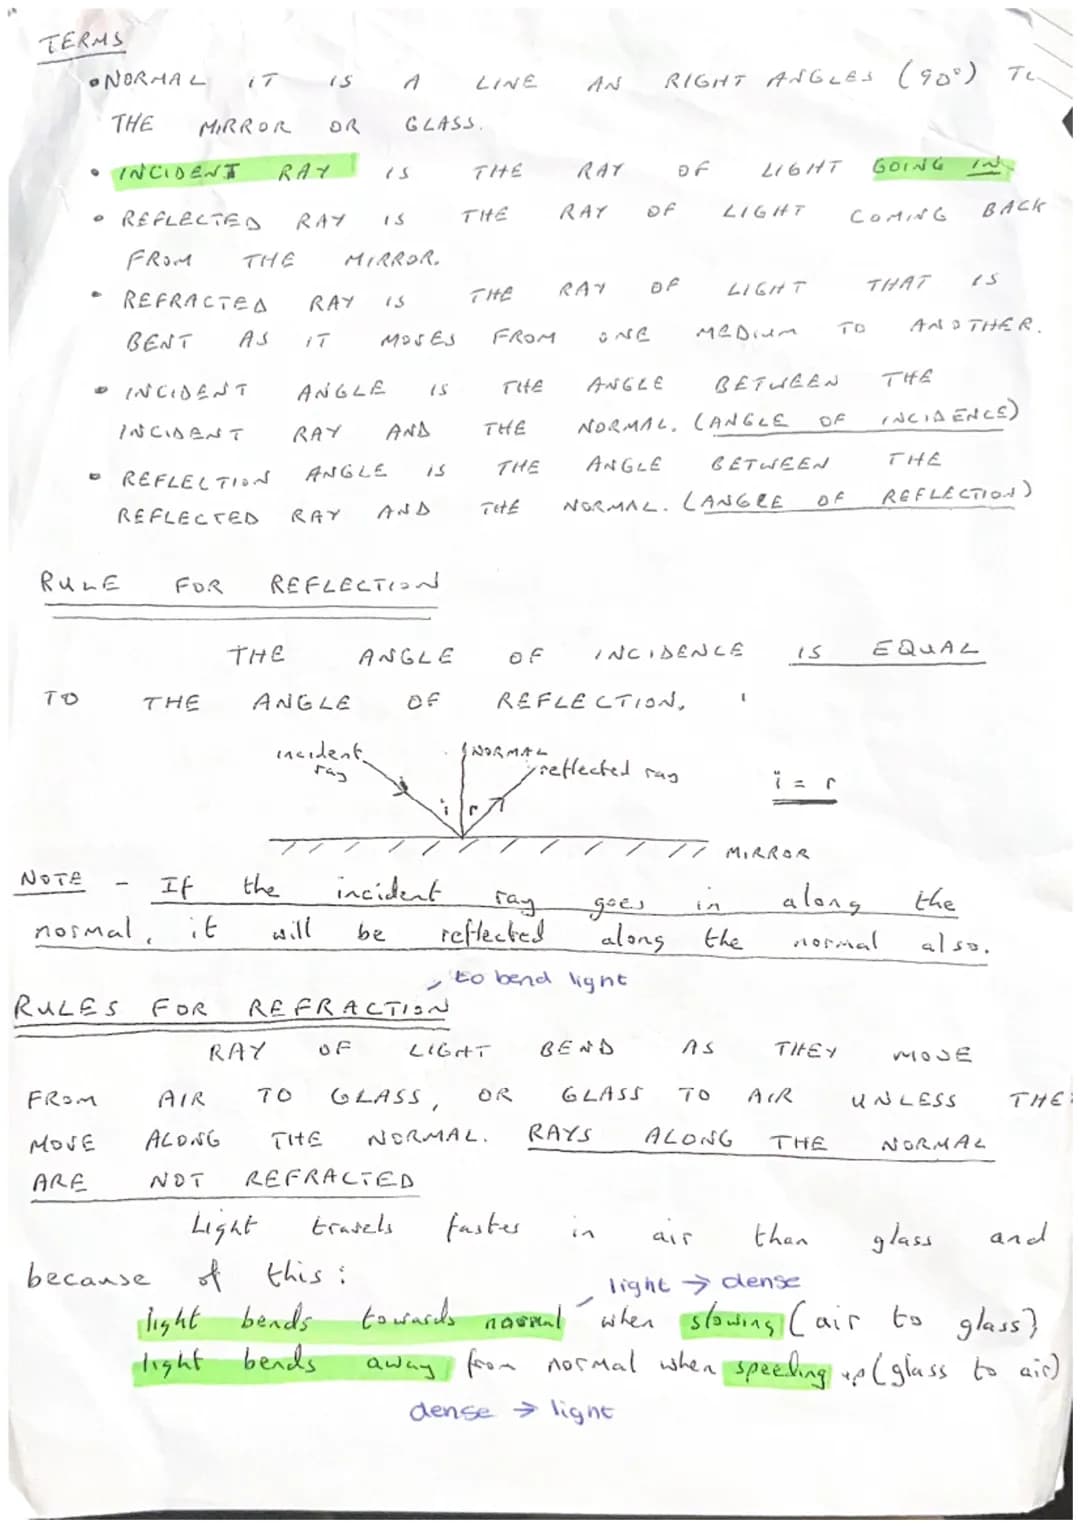 TERMS
• NORMAL IT IS A LINE AN RIGHT ANGLES (90°) TO
THE MIRROR OR GLASS.
• INCIDENT RAY IS THE RAY OF LIGHT GOING IN
• REFLECTED RAY IS THE RAY OF LIGHT COMING BACK
FROM THE MIRROR.
• REFRACTED RAY IS THE RAY OF LIGHT THAT IS
BENT AS IT MOVES FROM ONE MEDIUM TO ANOTHER.
• INCIDENT ANGLE IS THE ANGLE BETWEEN THE
INCIDENT RAY AND THE NORMAL. (ANGLE OF INCIDENCE)
• REFLECTION ANGLE IS THE ANGLE BETWEEN THE
REFLECTED RAY AND THE NORMAL. (ANGLE OF REFLECTION)
RULE FOR REFLECTION
THE ANGLE OF INCIDENCE IS EQUAL
TO THE ANGLE OF REFLECTION.
incident NORMAL
ray reflected ray i = r
i r
MIRROR
NOTE - If the incident ray goes in along the
normal, it will be reflected along the normal also.
to bend light
RULES FOR REFRACTION
RAY OF LIGHT BEND AS THEY MOVE
FROM AIR TO GLASS, OR GLASS TO AIR UNLESS THE
MOVE ALONG THE NORMAL. RAYS ALONG THE NORMAL
ARE NOT REFRACTED
Light travels faster in air than glass and
because of this:
light → dense
light bends towards normal when slowing (air to glass)
light bends away from normal when speeding up (glass to air)
dense → light